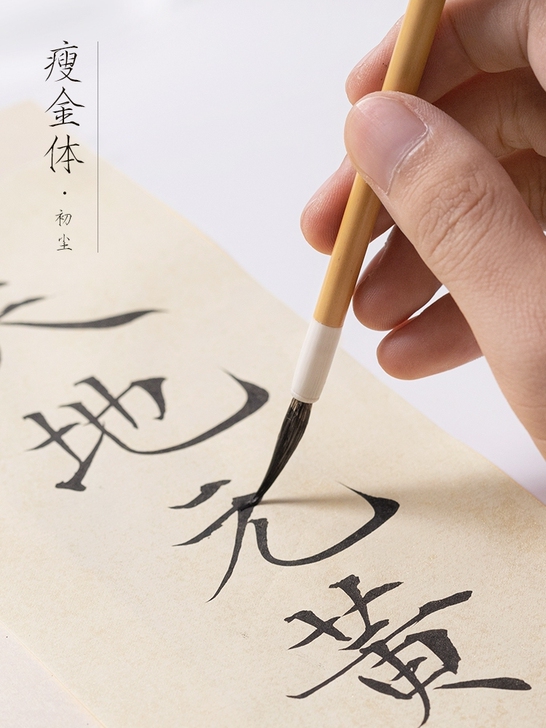 瘦金体·初尘
地元黄